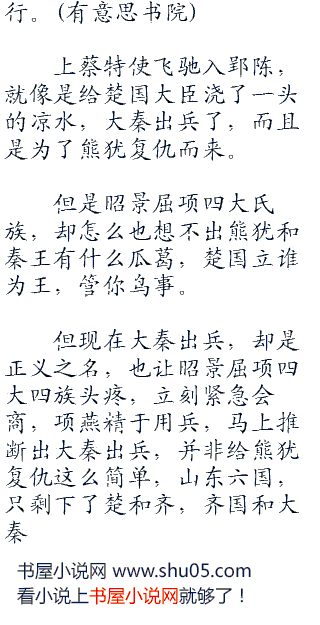 行。(有意思书院)
上蔡特使飞驰入郢陈，
就像是给楚国大臣浇了一头
的凉水，大秦出兵了，而且
是为了熊犹复仇而来。
但是昭景屈项四大氏
族，却怎么也想不出熊犹和
秦王有什么瓜葛，楚国立谁
为王，管你鸟事。
但现在大秦出兵，却是
正义之名，也让昭景屈项四
大四族头疼，立刻紧急会
商，项燕精于用兵，马上推
断出大秦出兵，并非给熊犹
复仇这么简单，山东六国，
只剩下了楚和齐，齐国和大
秦
书屋小说网 www.shu05.com
看小说上书屋小说网就够了！